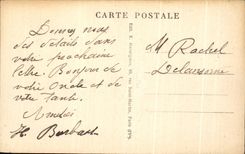 CARTE POSTALE
Donnez nous
des détails dans
votre prochaine
lettre. Bonjour de
votre Oncle et de
votre Tante.
Amitiés
H. Burbach
M Rachel